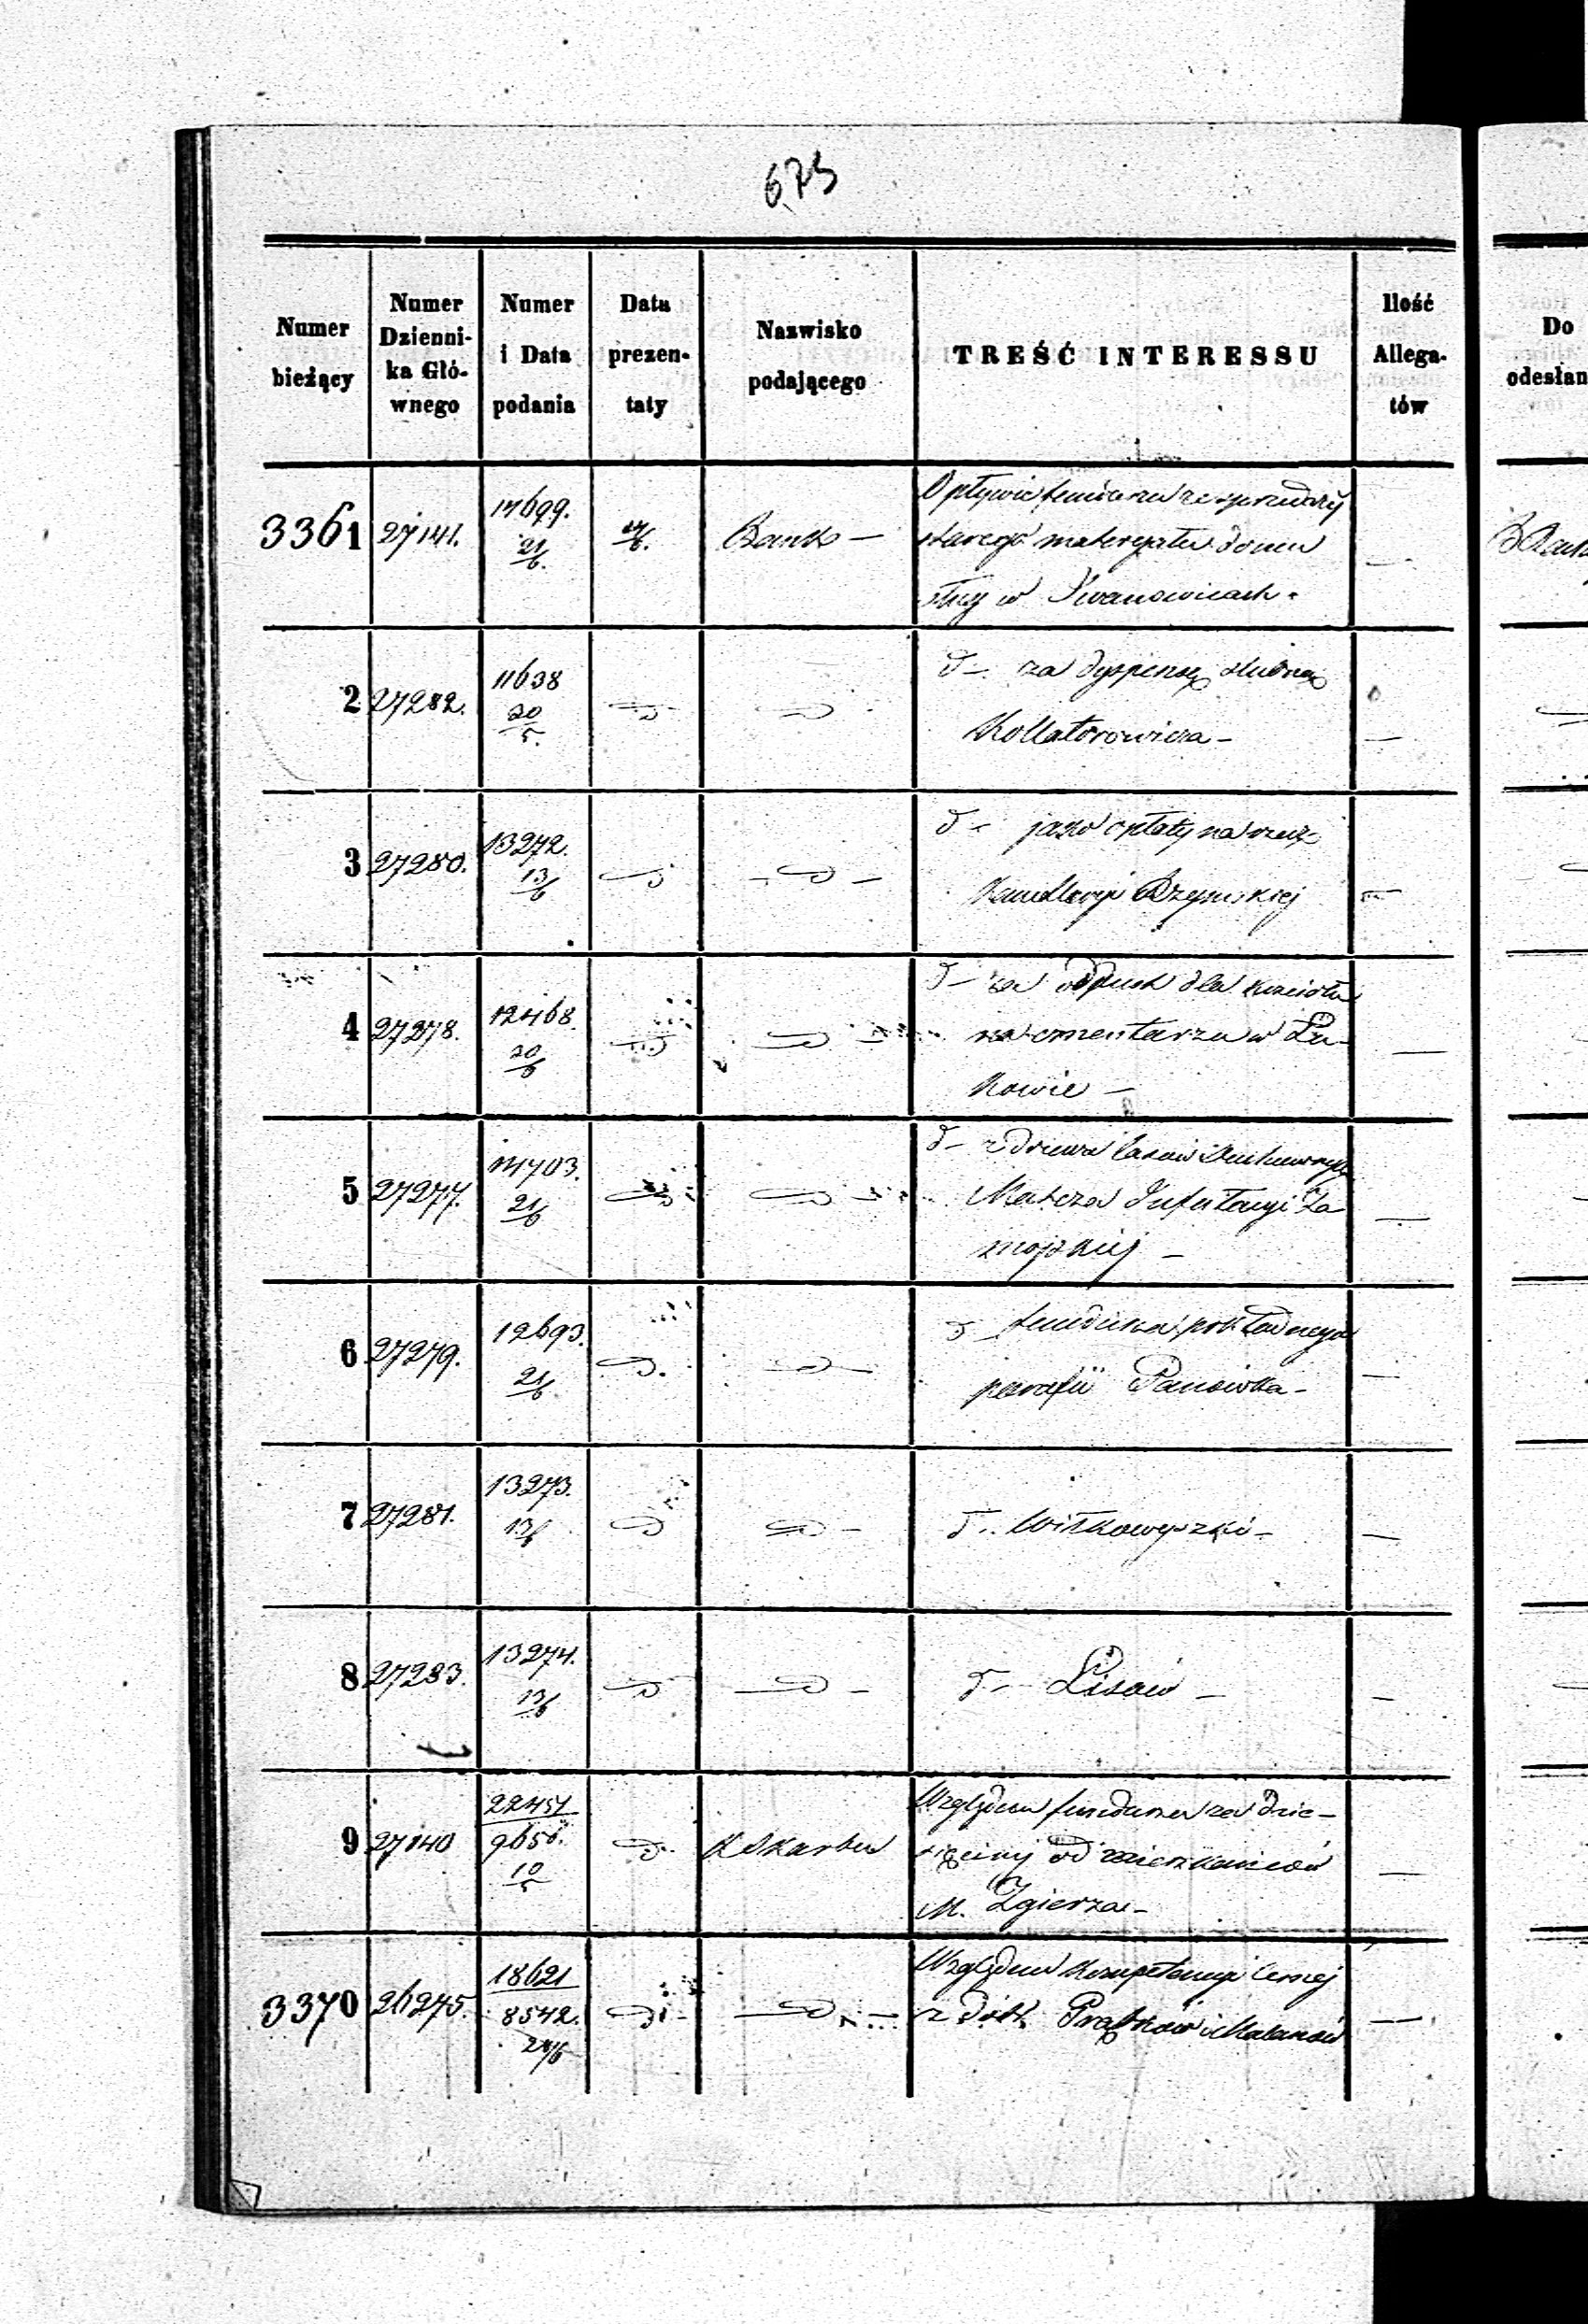 675
Numer bieżący
Numer Dzienni-
ka Głó-
wnego
Numer
i Data
podania
Data
prezen-
taty
Nazwisko
podającego
TREŚĆ INTERESSU
Ilość
Allega-
tów
Do
odesłan
3361 27141. 14699. 21/6. Bank — O pływie funduszu ze sprzedaży
starego materyału domu
w Iwanowicach.
2 27282. 11638 20/5. d– za dyspensę ślubną
Kollatorowicza –
3 27280. 13272. 13/6 d– jako opłaty na rzecz
Kancellaryi Rzymskiej
4 27278. 12468. 20/6 d– za odpust dla kościoła
na cmentarzu w Łu-
kowie –
5 27277. 14703. 21/6 d– z drzewa lasów Duchownych
Matcza Infułacyi Za
mojskiej –
6 27279. 12693. 21/6 d– funduszu pokładnego
parafii Paniówka –
7 27281. 13273. 13/6 d– Wiłkowyszki –
8 27283. 13274. 13/6 d– Lisów –
9 27140 22451 9656. 10/5 K Skarbu Względem funduszu za dzie-
sięciny od mieszkańców
M. Zgierza –
3370 26245. 18621 8542. 24/5 Względem kompetencyi leśnej
z dóbr Prątków i Malanów